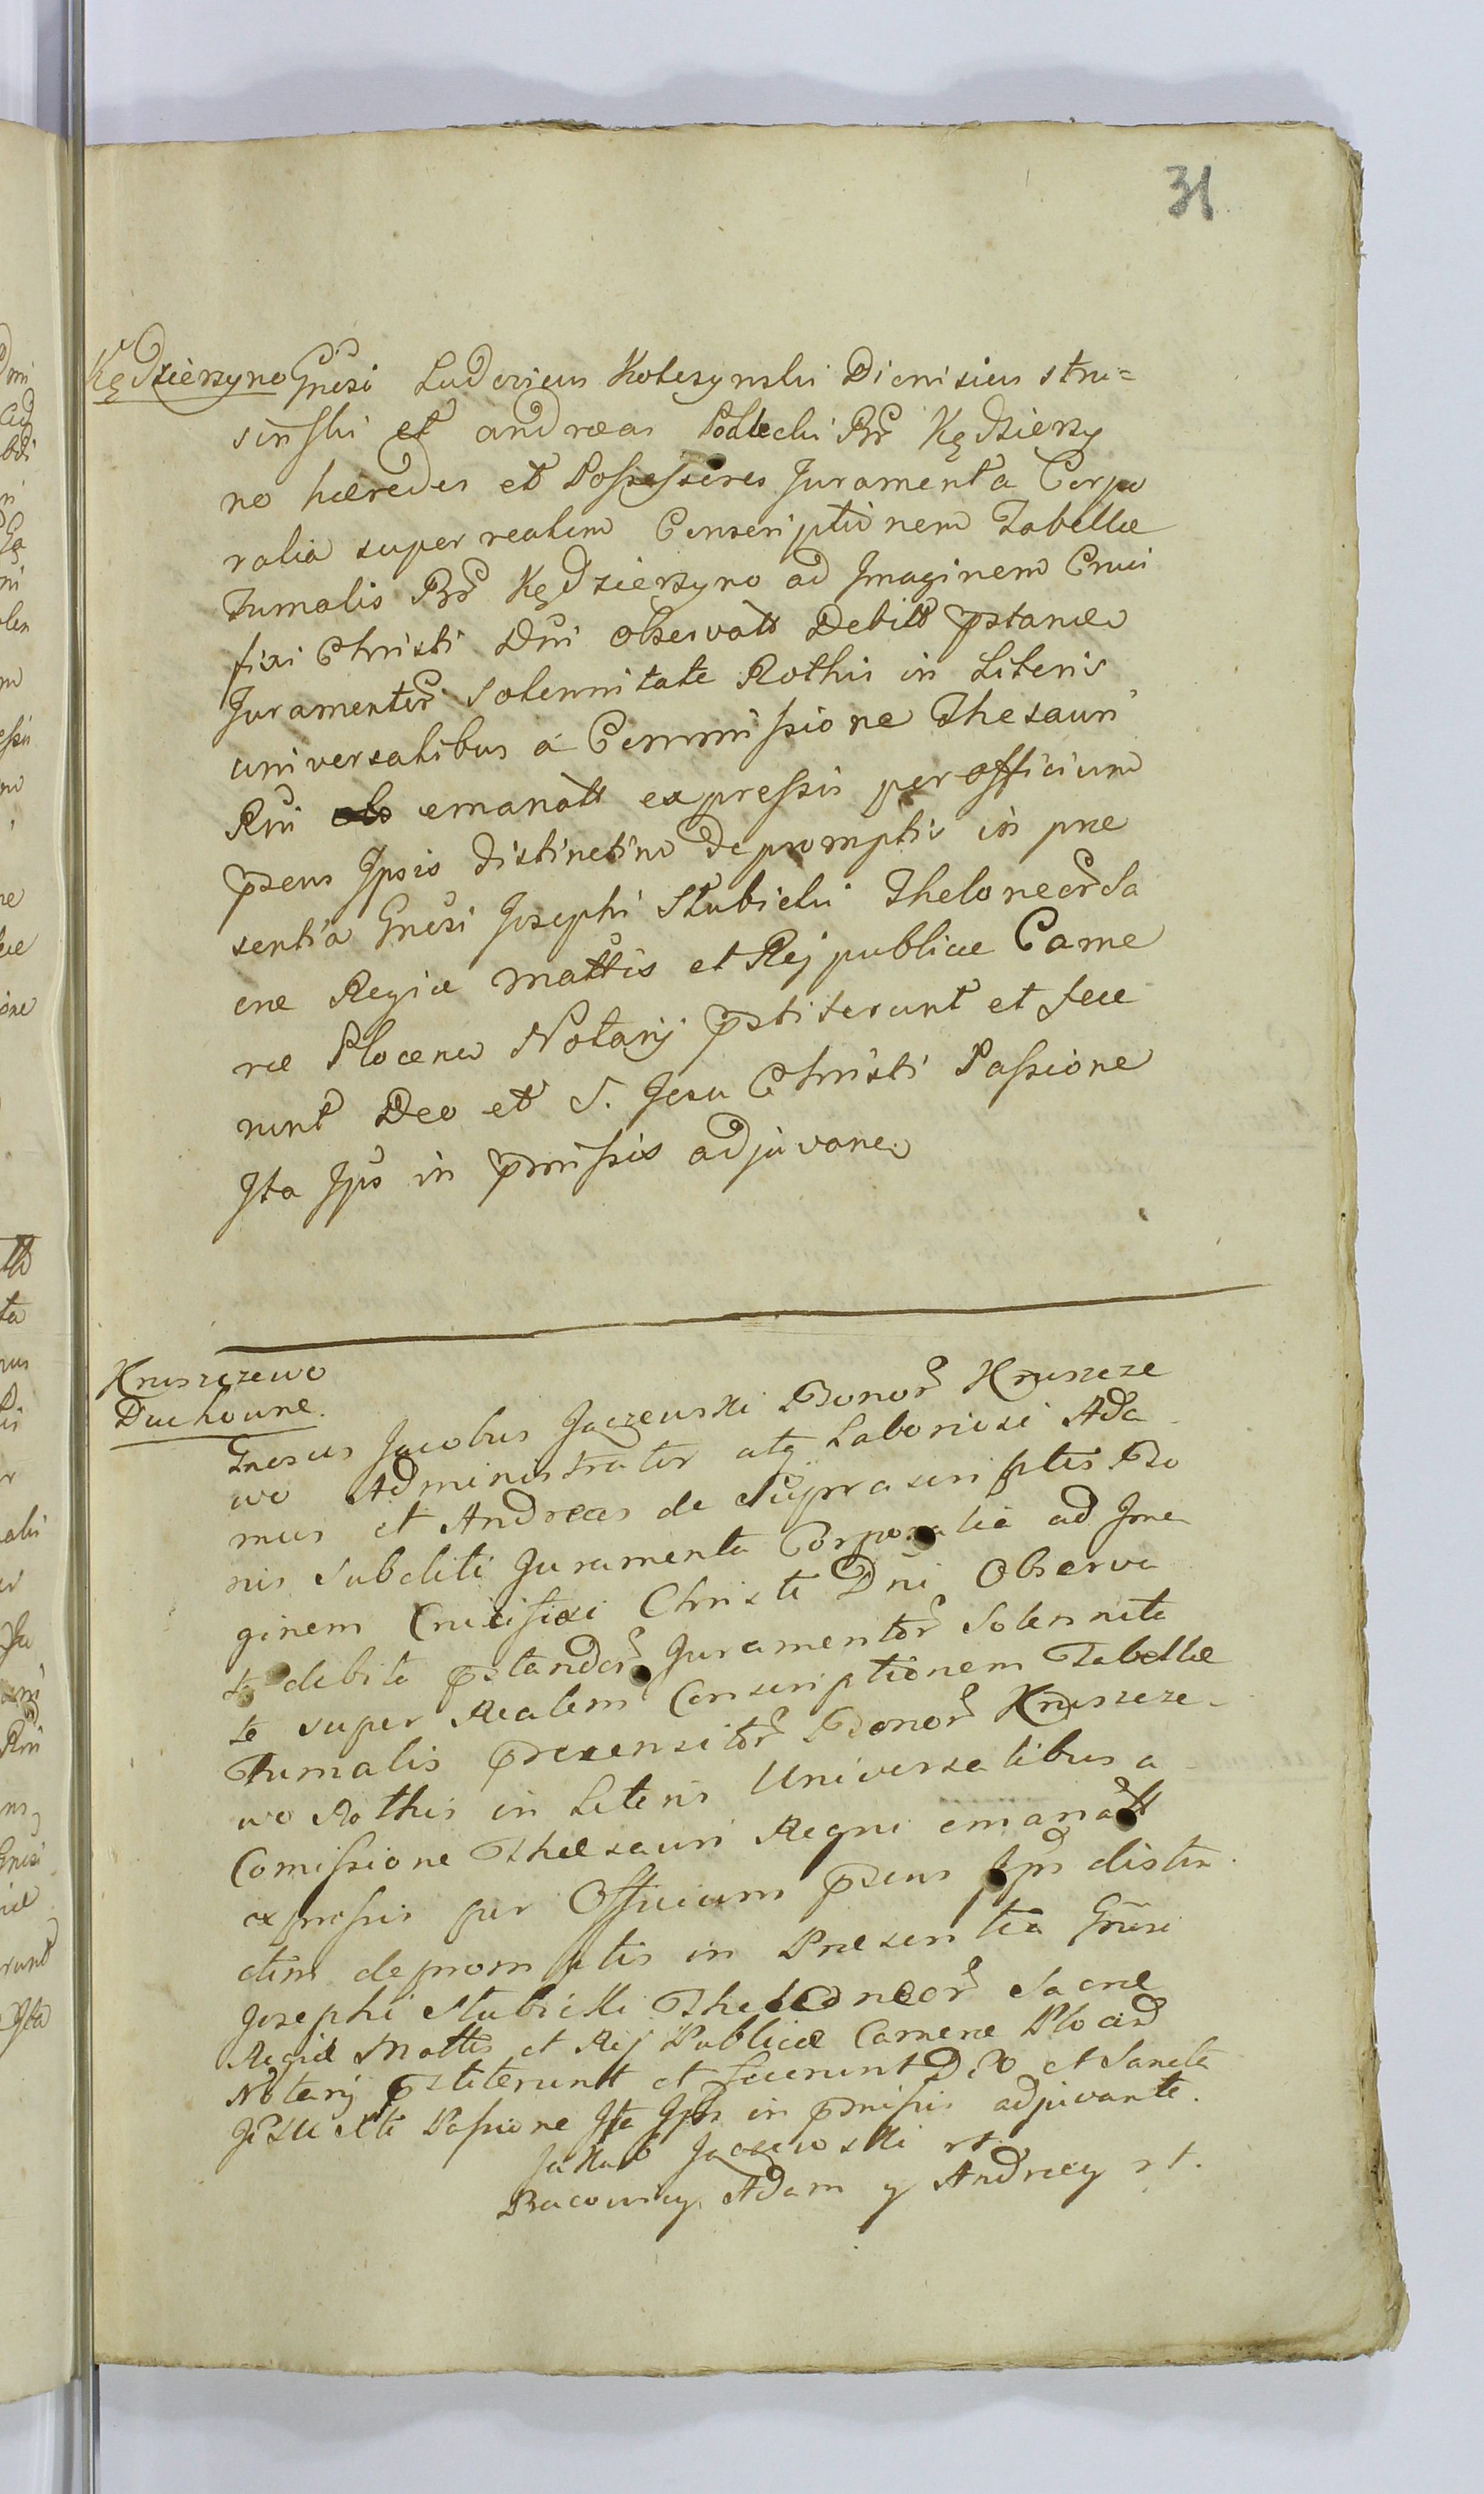 31
Kędzierzyno Gnosi Ludovicus Kolczynski Dionisius Stru=
sinski et Andreas Podlecki Br Kędzierzy
no hæredes et Possessores Juramenta Corpo
ralia super realem Conscriptionem Tabellæ
Fumalis Br Kędzierzyno ad Jmaginem Cruci
fixi Christi Dni observatt Debitt pstand
Juramentor Solennitate Rothis in Literis
universalibus a Commissione Thesauri
Rni emanatt expressis per officium
psens Jpsis distinctim depromptis in præ
sentia Gnosi Josephi Stubicki Theloneor Sa
cræ Regiæ Mattis et Rej publicæ Came
ræ Plocen Notarij pstiterunt et fece
runt Deo et S. Jesu Christi Passione
Jta Jps in pmissis adjuvane
Kruszczewo
Duchowne.
Gnosus Jacobus Jaczewski Bonor Kruszcze
wo Administrator atq Laboriosi Ada
mus et Andreas de Suprascriptis Bo
nis Subditi Juramenta Corporalia ad Jma
ginem Crucifixi Christi Dni Observa
ta debita pstandor Juramentor Solennita
te super Realem Conscriptionem Tabellæ
Fumalis præsensitor Bonor Kruszcze-
wo Rothis in Literis Universalibus a
Comissione Thesauri Regni emanatt
expressis per Officium psens Jps distin
ctim depromptis in Præsentia Gnosi
Josephi Stubicki Theloneor Sacræ
Regiæ Mattis et Rej Publicæ Cameræ Plocen
Notarij pstiterunt et fecerunt Deo et Sancta
Jesu Xti Passione Jta Jps in pmissis adjuvante.
Jakub Jaczewski rt.
Pracowity Adam y Andrzey rt.